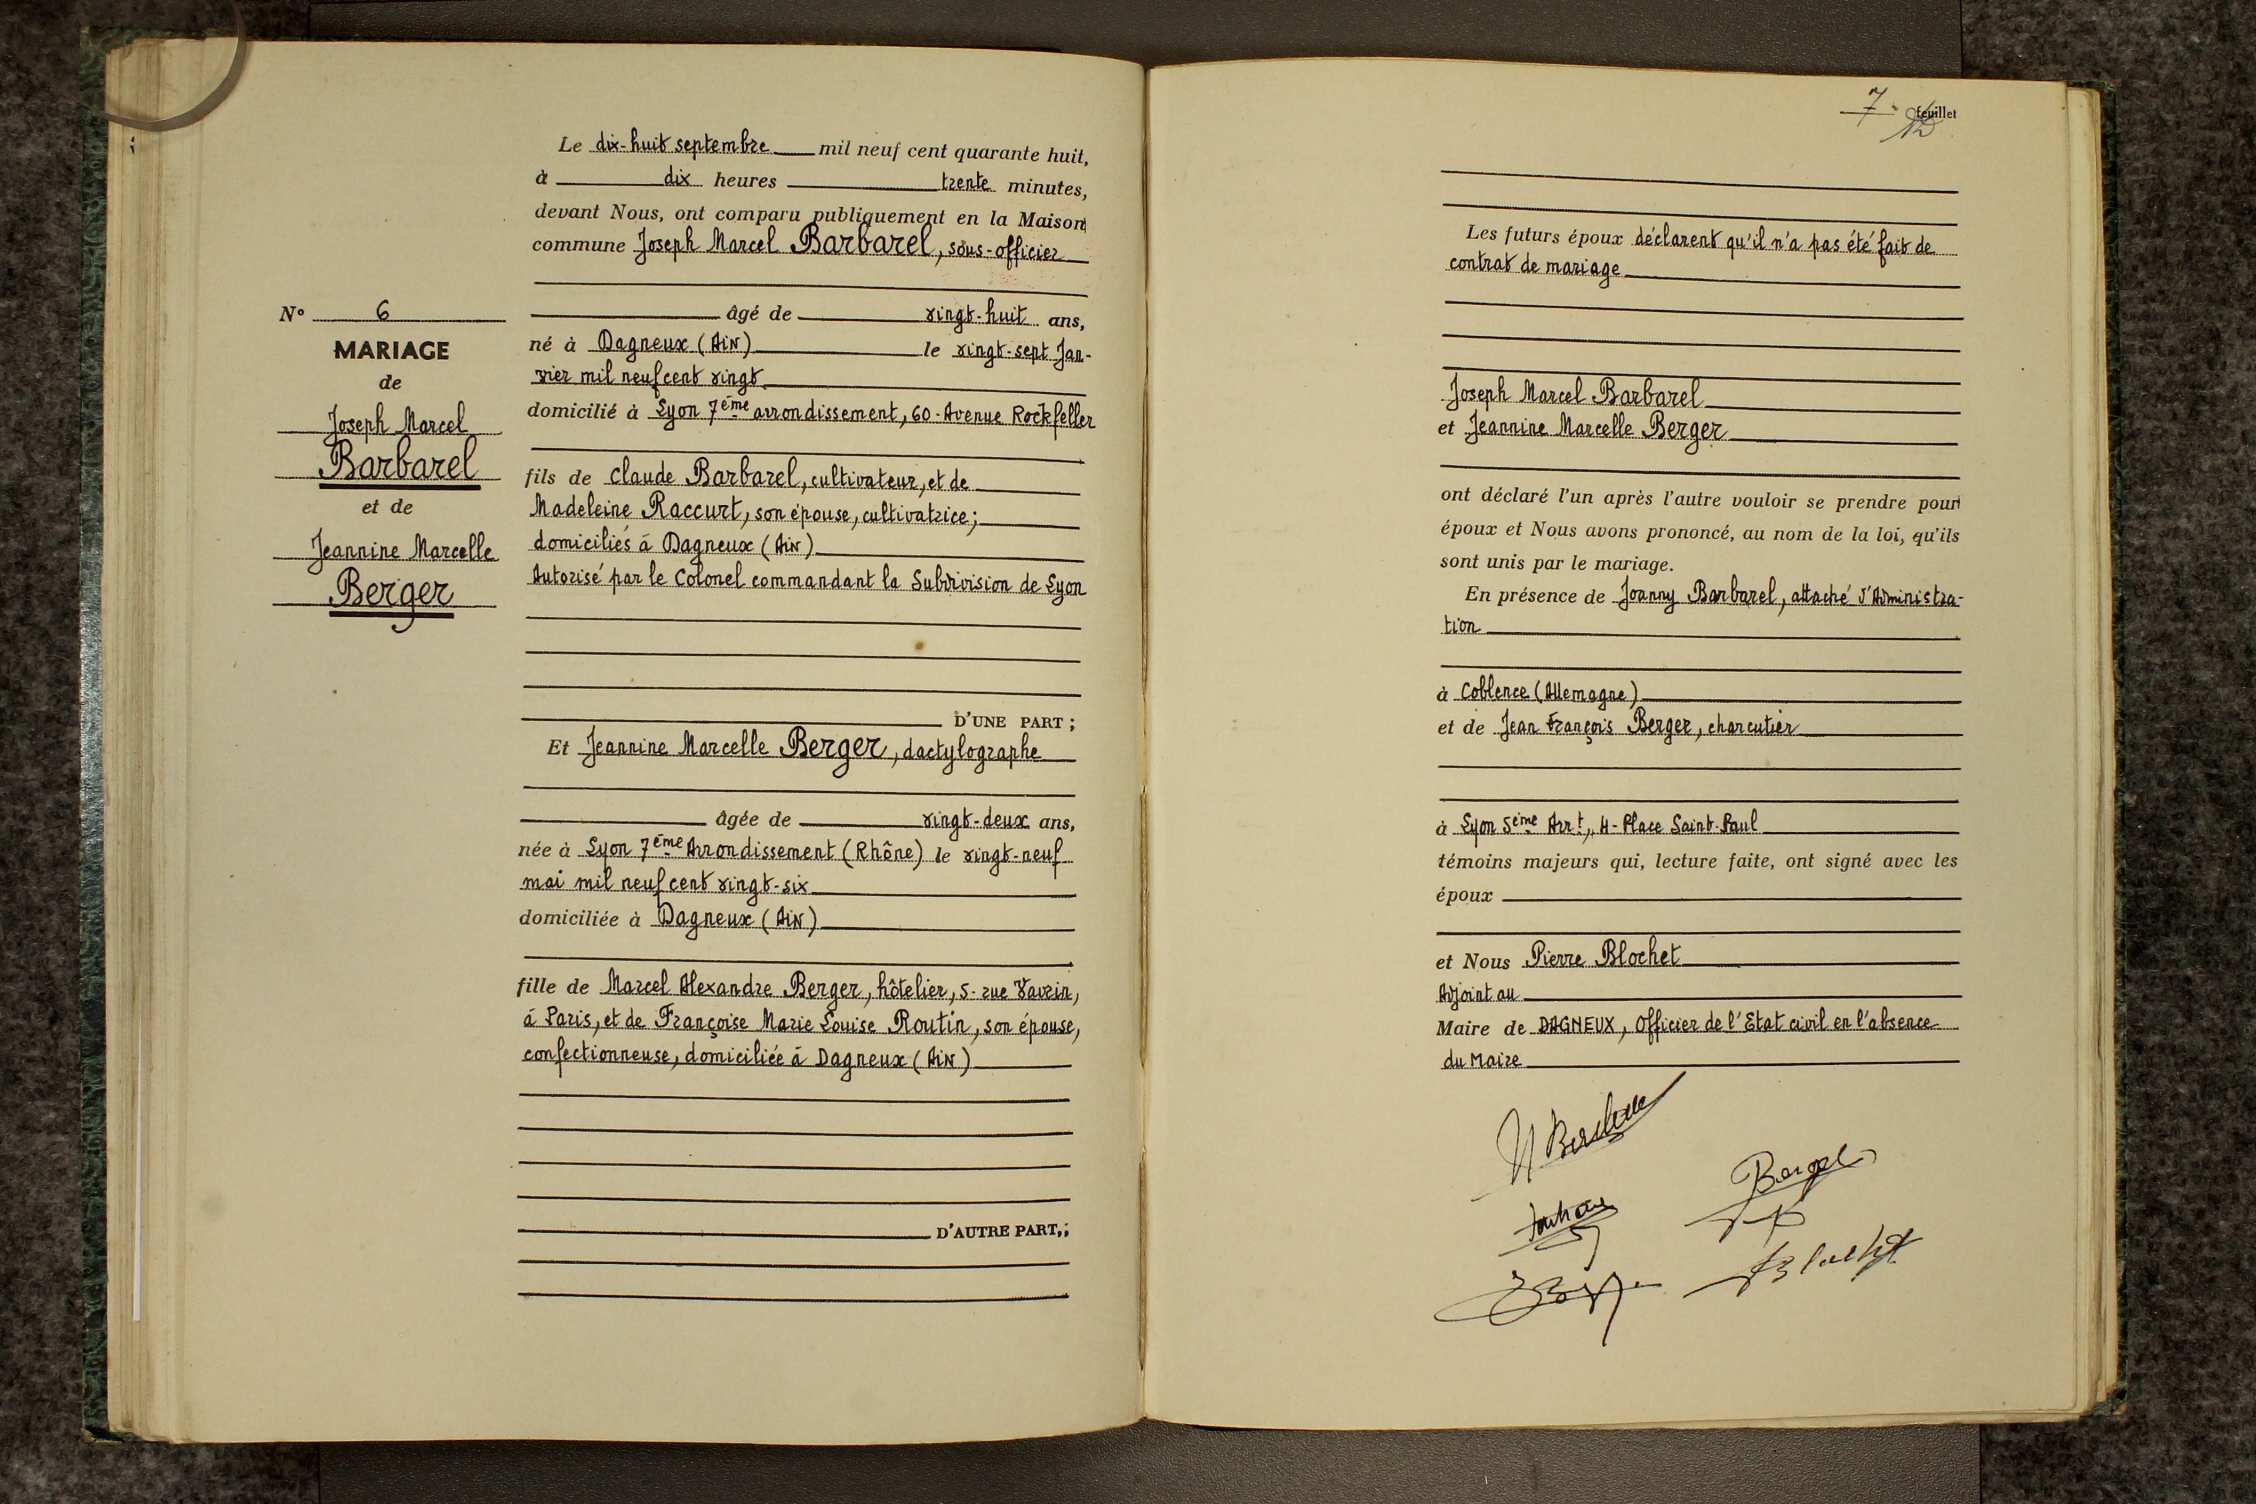 Le dix-huit septembre mil neuf cent quarante huit,
à dix heures trente minutes,
devant Nous, ont comparu publiquement en la Maison
commune Joseph Marcel Barbarel, sous-officier
âgé de vingt-huit ans,
né à Dagneux (Ain) le vingt-sept Jan-
vier mil neuf cent vingt
domicilié à Lyon 7ème arrondissement, 60-Avenue Rockfeller
fils de Claude Barbarel, cultivateur, et de
Madeleine Raccurt, son épouse, cultivatrice;
domiciliés à Dagneux (Ain)
Autorisé par le Colonel commandant la Subdivision de Lyon
D'UNE PART ;
Et Jeannine Marcelle Berger, dactylographe
âgée de vingt-deux ans,
née à Lyon 7ème Arrondissement (Rhône) le vingt-neuf
mai mil neuf cent vingt-six
domiciliée à Dagneux (Ain)
fille de Marcel Alexandre Berger, hôtelier, 5-rue Vavin,
à Paris, et de Françoise Marie Louise Routin, son épouse,
confectionneuse, domiciliée à Dagneux (Ain)
D'AUTRE PART,;
N° 6
MARIAGE
de
Joseph Marcel
Barbarel
et de
Jeannine Marcelle
Berger
7e feuillet
Les futurs époux déclarent qu'il n'a pas été fait de
contrat de mariage
Joseph Marcel Barbarel
et Jeannine Marcelle Berger
ont déclaré l'un après l'autre vouloir se prendre pour
époux et Nous avons prononcé, au nom de la loi, qu'ils
sont unis par le mariage.
En présence de Joanny Barbarel, attaché d'Administra-
tion
à Coblence (Allemagne)
et de Jean François Berger, charcutier
à Lyon 5ème Arrt, 4-Place Saint-Paul
témoins majeurs qui, lecture faite, ont signé avec les
époux
et Nous Pierre Blochet
Adjoint au
Maire de DAGNEUX, Officier de l'Etat civil en l'absence
du Maire
Berger
Blochet